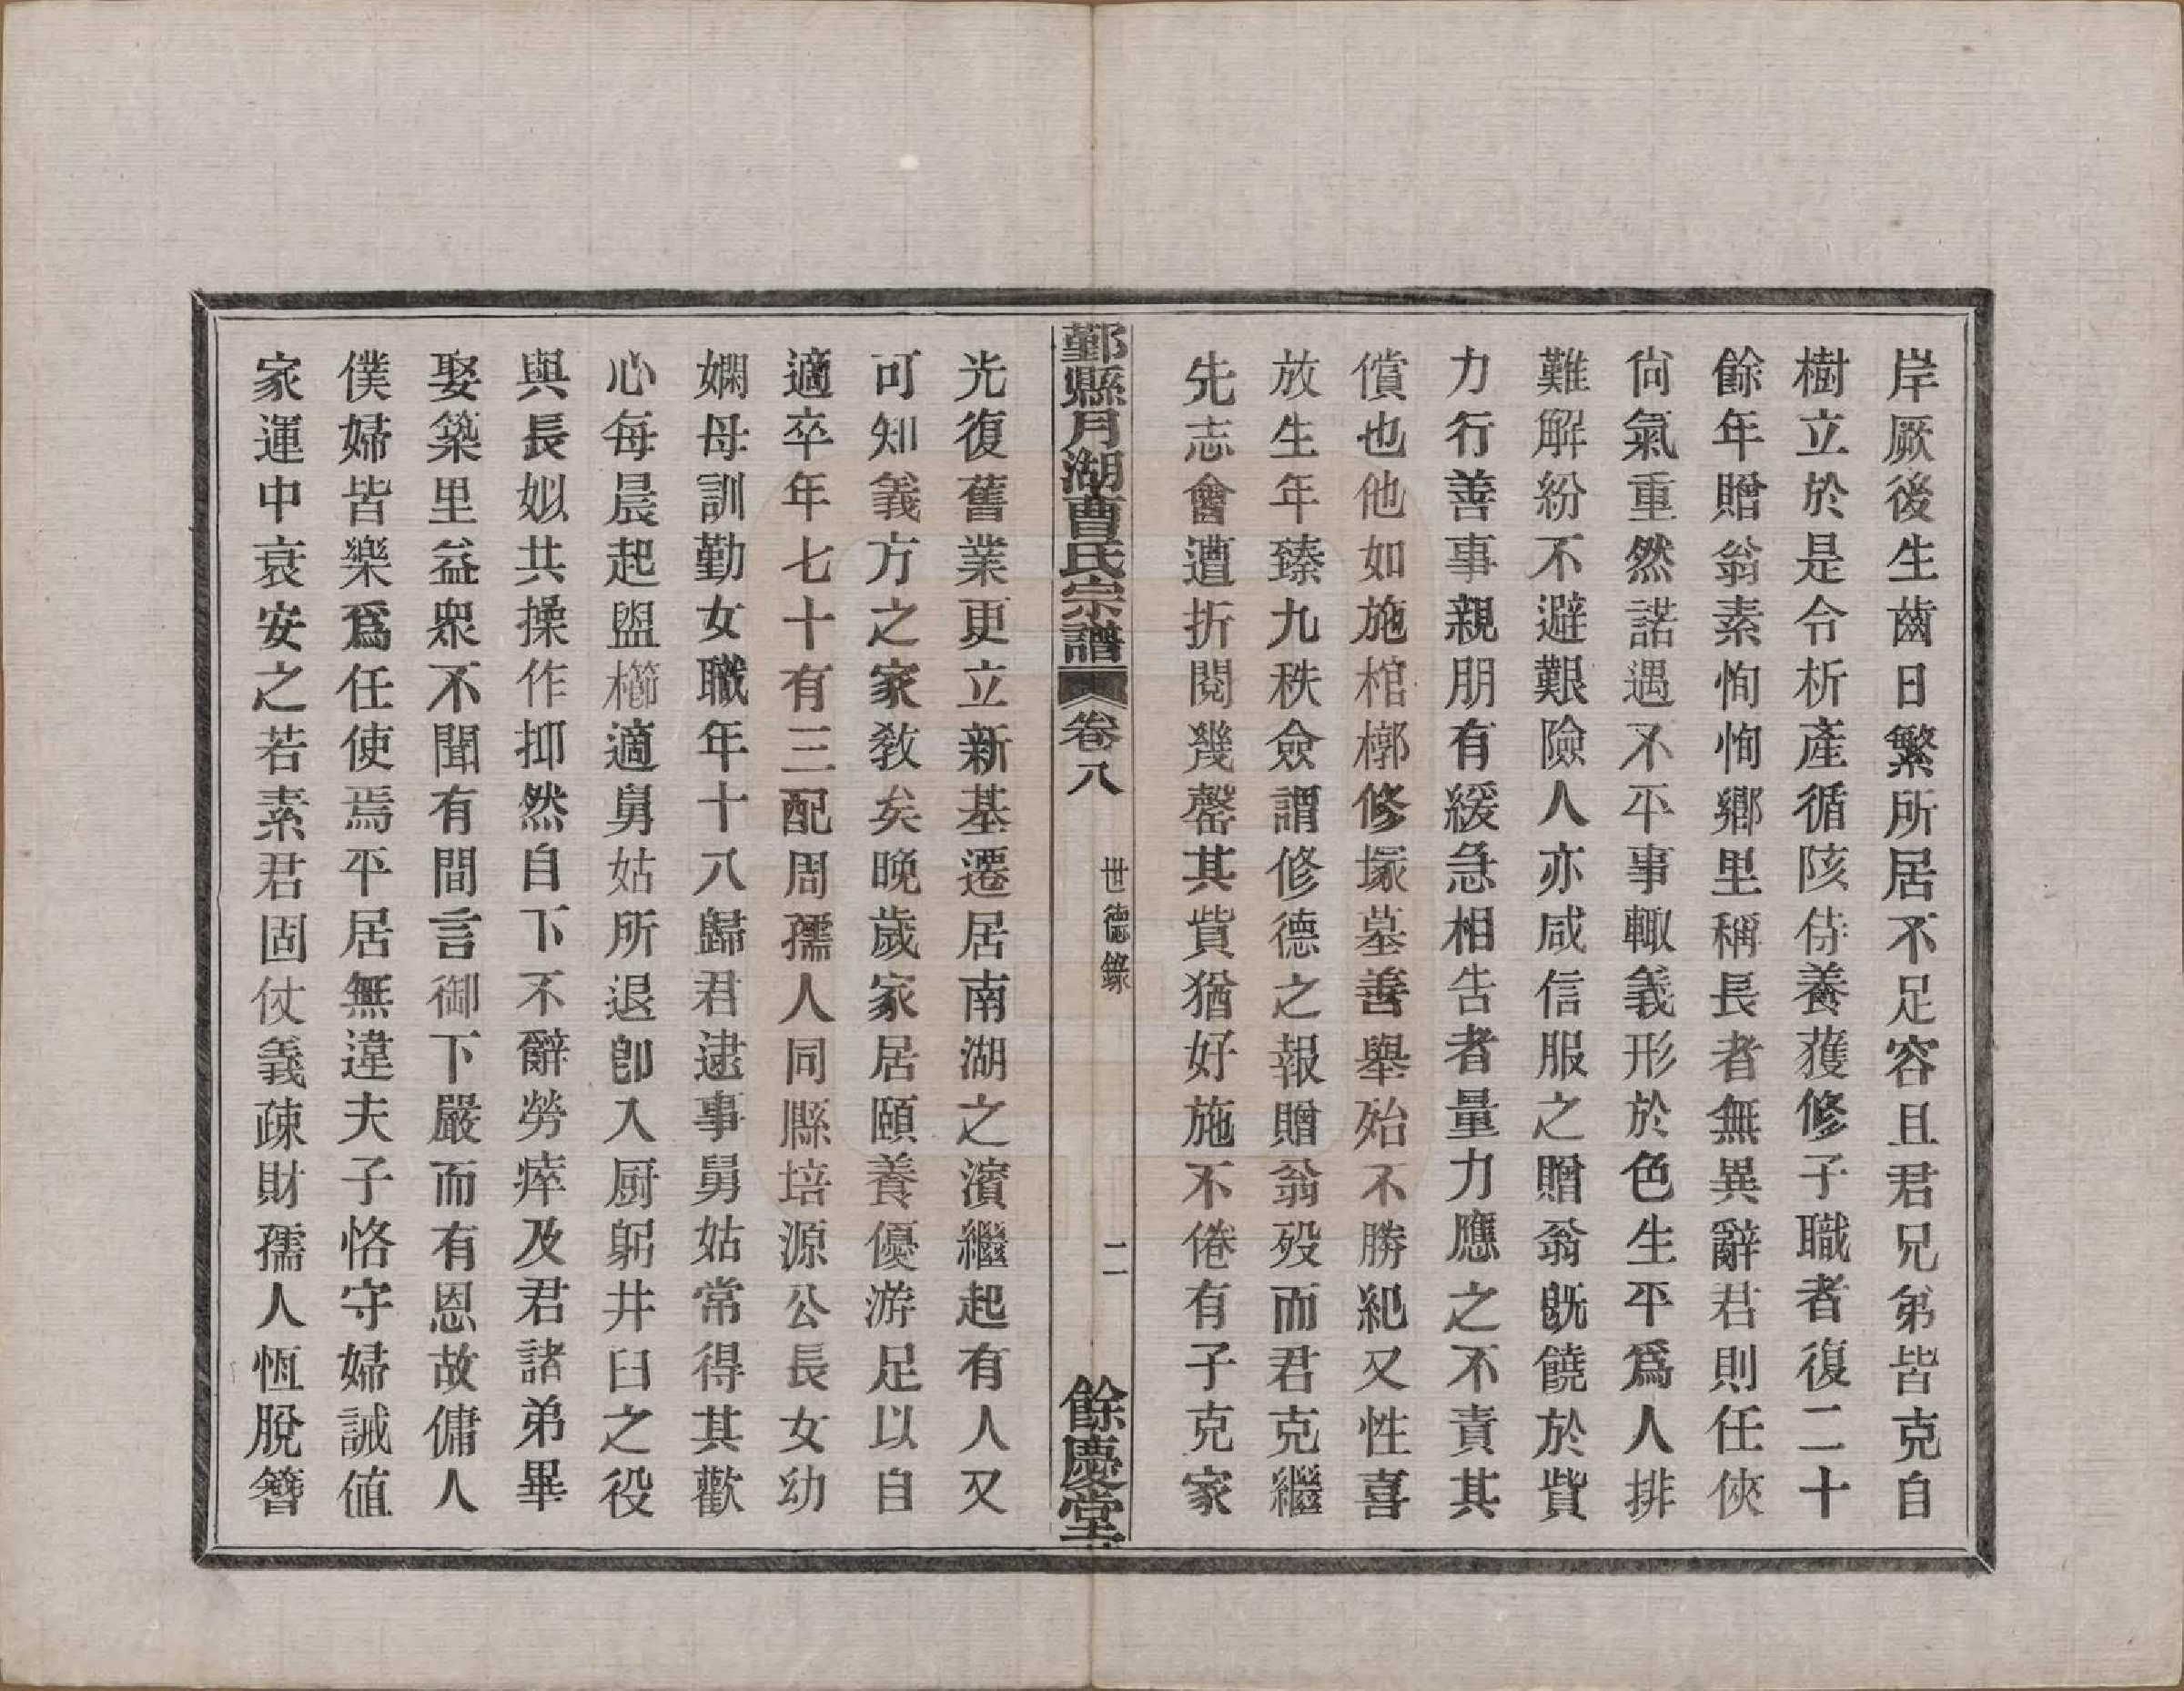 岸厥後生齒日繁所居不足容且君兄弟皆克自
樹立於是令析產循陔侍養獲修子職者復二十
餘年贈翁素恂恂鄉里稱長者無異辭君則任俠
尙氣重然諾遇不平事輙義形於色生平爲人排
難解紛不避艱險人亦咸信服之贈翁旣饒於貲
力行善事親朋有緩急相告者量力應之不責其
償也他如施棺槨修塚墓善舉殆不勝紀又性喜
放生年臻九秩僉謂修德之報贈翁歿而君克繼
先志會遭折閱幾罄其貲猶好施不倦有子克家
鄞縣月湖曹氏宗譜 卷八 世德錄 二 餘慶堂
光復舊業更立新基遷居南湖之濱繼起有人又
可知義方之家敎矣晚歲家居頤養優游足以自
適卒年七十有三配周孺人同縣培源公長女幼
嫻母訓勤女職年十八歸君逮事舅姑常得其歡
心每晨起盥櫛適舅姑所退卽入厨躬井臼之役
與長姒共操作抑然自下不辭勞瘁及君諸弟畢
娶築里益衆不聞有間言御下嚴而有恩故傭人
僕婦皆樂爲任使焉平居無違夫子恪守婦誡値
家運中衰安之若素君固仗義疎財孺人恆脫簪